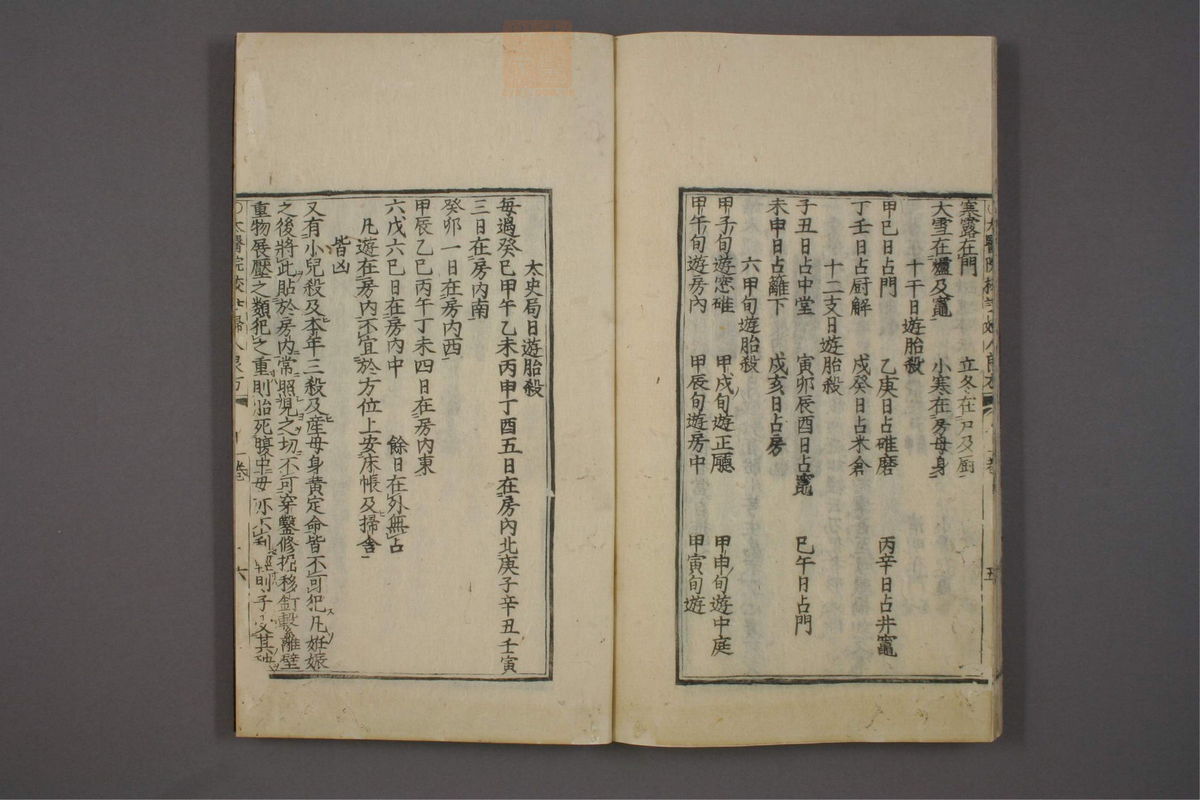 寒露在門　立冬在戸及厨
大雪在爐及竈　小寒在房母身
十干日遊胎殺
甲巳日占門　乙庚日占碓磨　丙辛日占井竈
丁壬日占厨解　戊癸日占米倉
十二支日遊胎殺
子丑日占中堂　寅卯辰酉日占竈　巳午日占門
未申日占籬下　戌亥日占房
六甲旬遊胎殺
甲子旬遊窓碓　甲戌旬遊正廳　甲申旬遊中庭
甲午旬遊房內　甲辰旬遊房中　甲寅旬遊
太史局日遊胎殺
每過癸巳甲午乙未丙申丁酉五日在房內北庚子辛丑壬寅
三日在房內南
癸卯一日在房內西
甲辰乙巳丙午丁未四日在房內東
六戊六巳日在房內中　餘日在外無占
凡遊在房內不宜於方位上安床帳及掃舍
皆凶
又有小兒殺及本年三殺及産母身黄定命皆不可犯凡姙娠
之後將此貼於房內常照見之切不可穿鑿修掘移釘繫籬壁
重物展壓之類犯之重則胎死腹中母亦不利輕則子受其